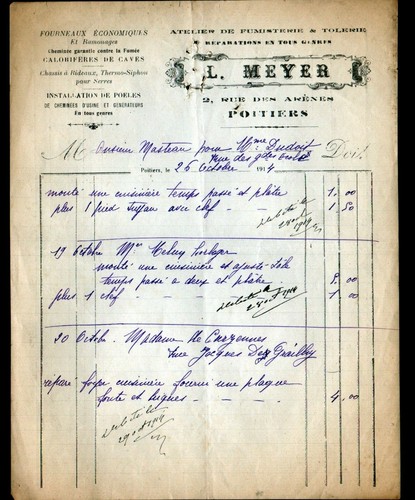 FOURNEAUX ÉCONOMIQUES
Et Ramonages
Cheminée garantie contre la Fumée
CALORIFÈRES DE CAVES
Chassis à Rideaux, Thermo-Siphon
pour Serres
INSTALLATION DE POELES
DE CHEMINÉES D'USINE ET GÉNÉRATEURS
En tous genres
ATELIER DE FUMISTERIE & TOLERIE
RÉPARATIONS EN TOUS GENRES
L. MEYER
2, RUE DES ARÈNES
POITIERS
Monsieur Masteau pour Mme Dudoit
rue des Doit
Poitiers, le 26 Octobre 1914
monté une cuisinière temps passé et plâtre 1,00
plus 1 pied tuyau avec clef 1,50
19 Octobre Mr
monté une cuisinière et ajusté tôle
temps passé a deux et plâtre 5,00
plus 1 clef 1,00
20 Octobre. Madame de Curzonnes
rue Jacques de Grailly
réparé foyer cuisinière fourni une plaque
fonte et briques 4,00